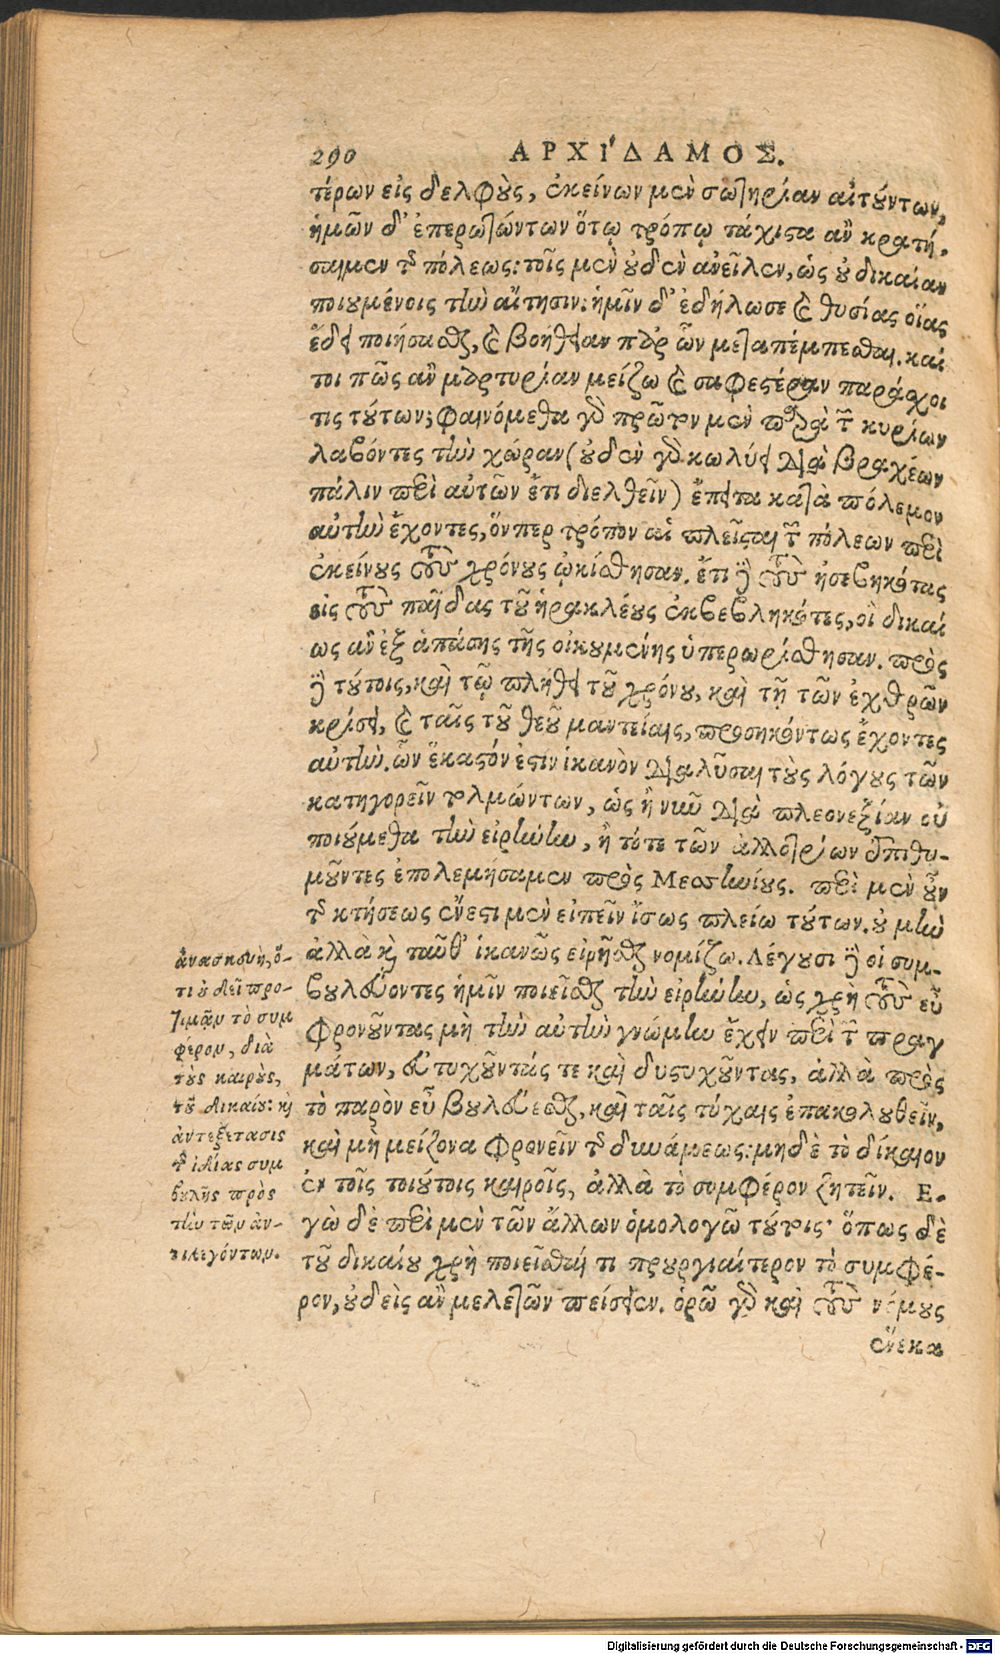 290 ΑΡΧΙ´ΔΑΜΟΣ.
τέρων εἰς δελφοὺς, ἐκείνων μὲν σωτηρίαν αἰτούντων,
ἡμῶν δ' ἐπερωτώντων ὅτῳ τρόπῳ τάχιστα ἂν κρατή-
σαιμεν τῆς πόλεως: τοῖς μὲν οὐδὲν ἀνεῖλεν, ὡς οὐ δικαίαν
ποιουμένοις τὴν αἴτησιν: ἡμῖν δ' ἐδήλωσε καὶ θυσίας οἵας
ἔδει ποιήσασθαι, καὶ βοήθειαν παρ' ὧν μεταπέμπεσθαι. καί
τοι πῶς ἂν μαρτυρίαν μείζω καὶ σαφεστέραν παράσχοι
τις τούτων; φαινόμεθα γὰρ πρῶτον μὲν παρὰ τῶν κυρίων
λαβόντες τὴν χώραν (οὐδὲν γὰρ κωλύει διὰ βραχέων
πάλιν περὶ αὐτῶν ἔτι διελθεῖν) ἔπειτα κατὰ πόλεμον
αὐτὴν ἔχοντες, ὅνπερ τρόπον αἱ πλεῖσται τῶν πόλεων περὶ
ἐκείνους τοὺς χρόνους ᾠκίσθησαν. ἔτι δὲ τοὺς ἠσεβηκότας
εἰς τοὺς παῖδας τοῦ ἡρακλέους ἐκβεβληκότες, οἳ δικαί
ως ἂν ἐξ ἁπάσης τῆς οἰκουμένης ὑπερωρίσθησαν. πρὸς
δὲ τούτοις, καὶ τῷ πλήθει τοῦ χρόνου, καὶ τῇ τῶν ἐχθρῶν
κρίσει, καὶ ταῖς τοῦ θεοῦ μαντείαις, προσηκόντως ἔχοντες
αὐτήν. ὧν ἕκαστόν ἐστιν ἱκανὸν διαλῦσαι τοὺς λόγους τῶν
κατηγορεῖν τολμώντων, ὡς ἢ νῦν διὰ πλεονεξίαν οὐ
ποιούμεθα τὴν εἰρήνην, ἢ τότε τῶν ἀλλοτρίων ἐπιθυ-
μοῦντες ἐπολεμήσαμεν πρὸς Μεσσηνίους. περὶ μὲν οὖν
τῆς κτήσεως ἔνεστι μὲν εἰπεῖν ἴσως πλείω τούτων. οὐ μὴν
ἀλλὰ καὶ ταῦθ' ἱκανῶς εἰρῆσθαι νομίζω. Λέγουσι δὲ οἱ συμ-
βουλεύοντες ἡμῖν ποιεῖσθαι τὴν εἰρήνην, ὡς χρὴ τοὺς εὖ
φρονοῦντας μὴ τὴν αὐτὴν γνώμην ἔχειν περὶ τῶν πραγ
μάτων, εὐτυχοῦντάς τε καὶ δυστυχοῦντας, ἀλλὰ πρὸς
τὸ παρὸν εὖ βουλεύεσθαι, καὶ ταῖς τύχαις ἐπακολουθεῖν,
καὶ μὴ μείζονα φρονεῖν τῆς δυνάμεως: μηδὲ τὸ δίκαιον
ἐν τοῖς τοιούτοις καιροῖς, ἀλλὰ τὸ συμφέρον ζητεῖν. Ε-
γὼ δὲ περὶ μὲν τῶν ἄλλων ὁμολογῶ τούτοις· ὅπως δὲ
τοῦ δικαίου χρὴ ποιεῖσθαί τι προὐργιαίτερον τὸ συμφέ-
ρον, οὐδεὶς ἂν με λέγων πείσειεν. ὁρῶ γὰρ καὶ τοὺς νόμους
ἕνεκα
ἀνασκευὴ, ὅ-
τι οὐ δεῖ προ-
τιμᾶν τὸ συμ
φέρον, διὰ
τοὺς καιροὺς,
τοῦ δικαίου: καὶ
ἀντεξέτασις
τῆς ἰδίας συμ
βουλῆς πρὸς
τὴν τῶν ἀν-
τιλεγόντων.
Digitalisierung gefördert durch die Deutsche Forschungsgemeinschaft - DFG